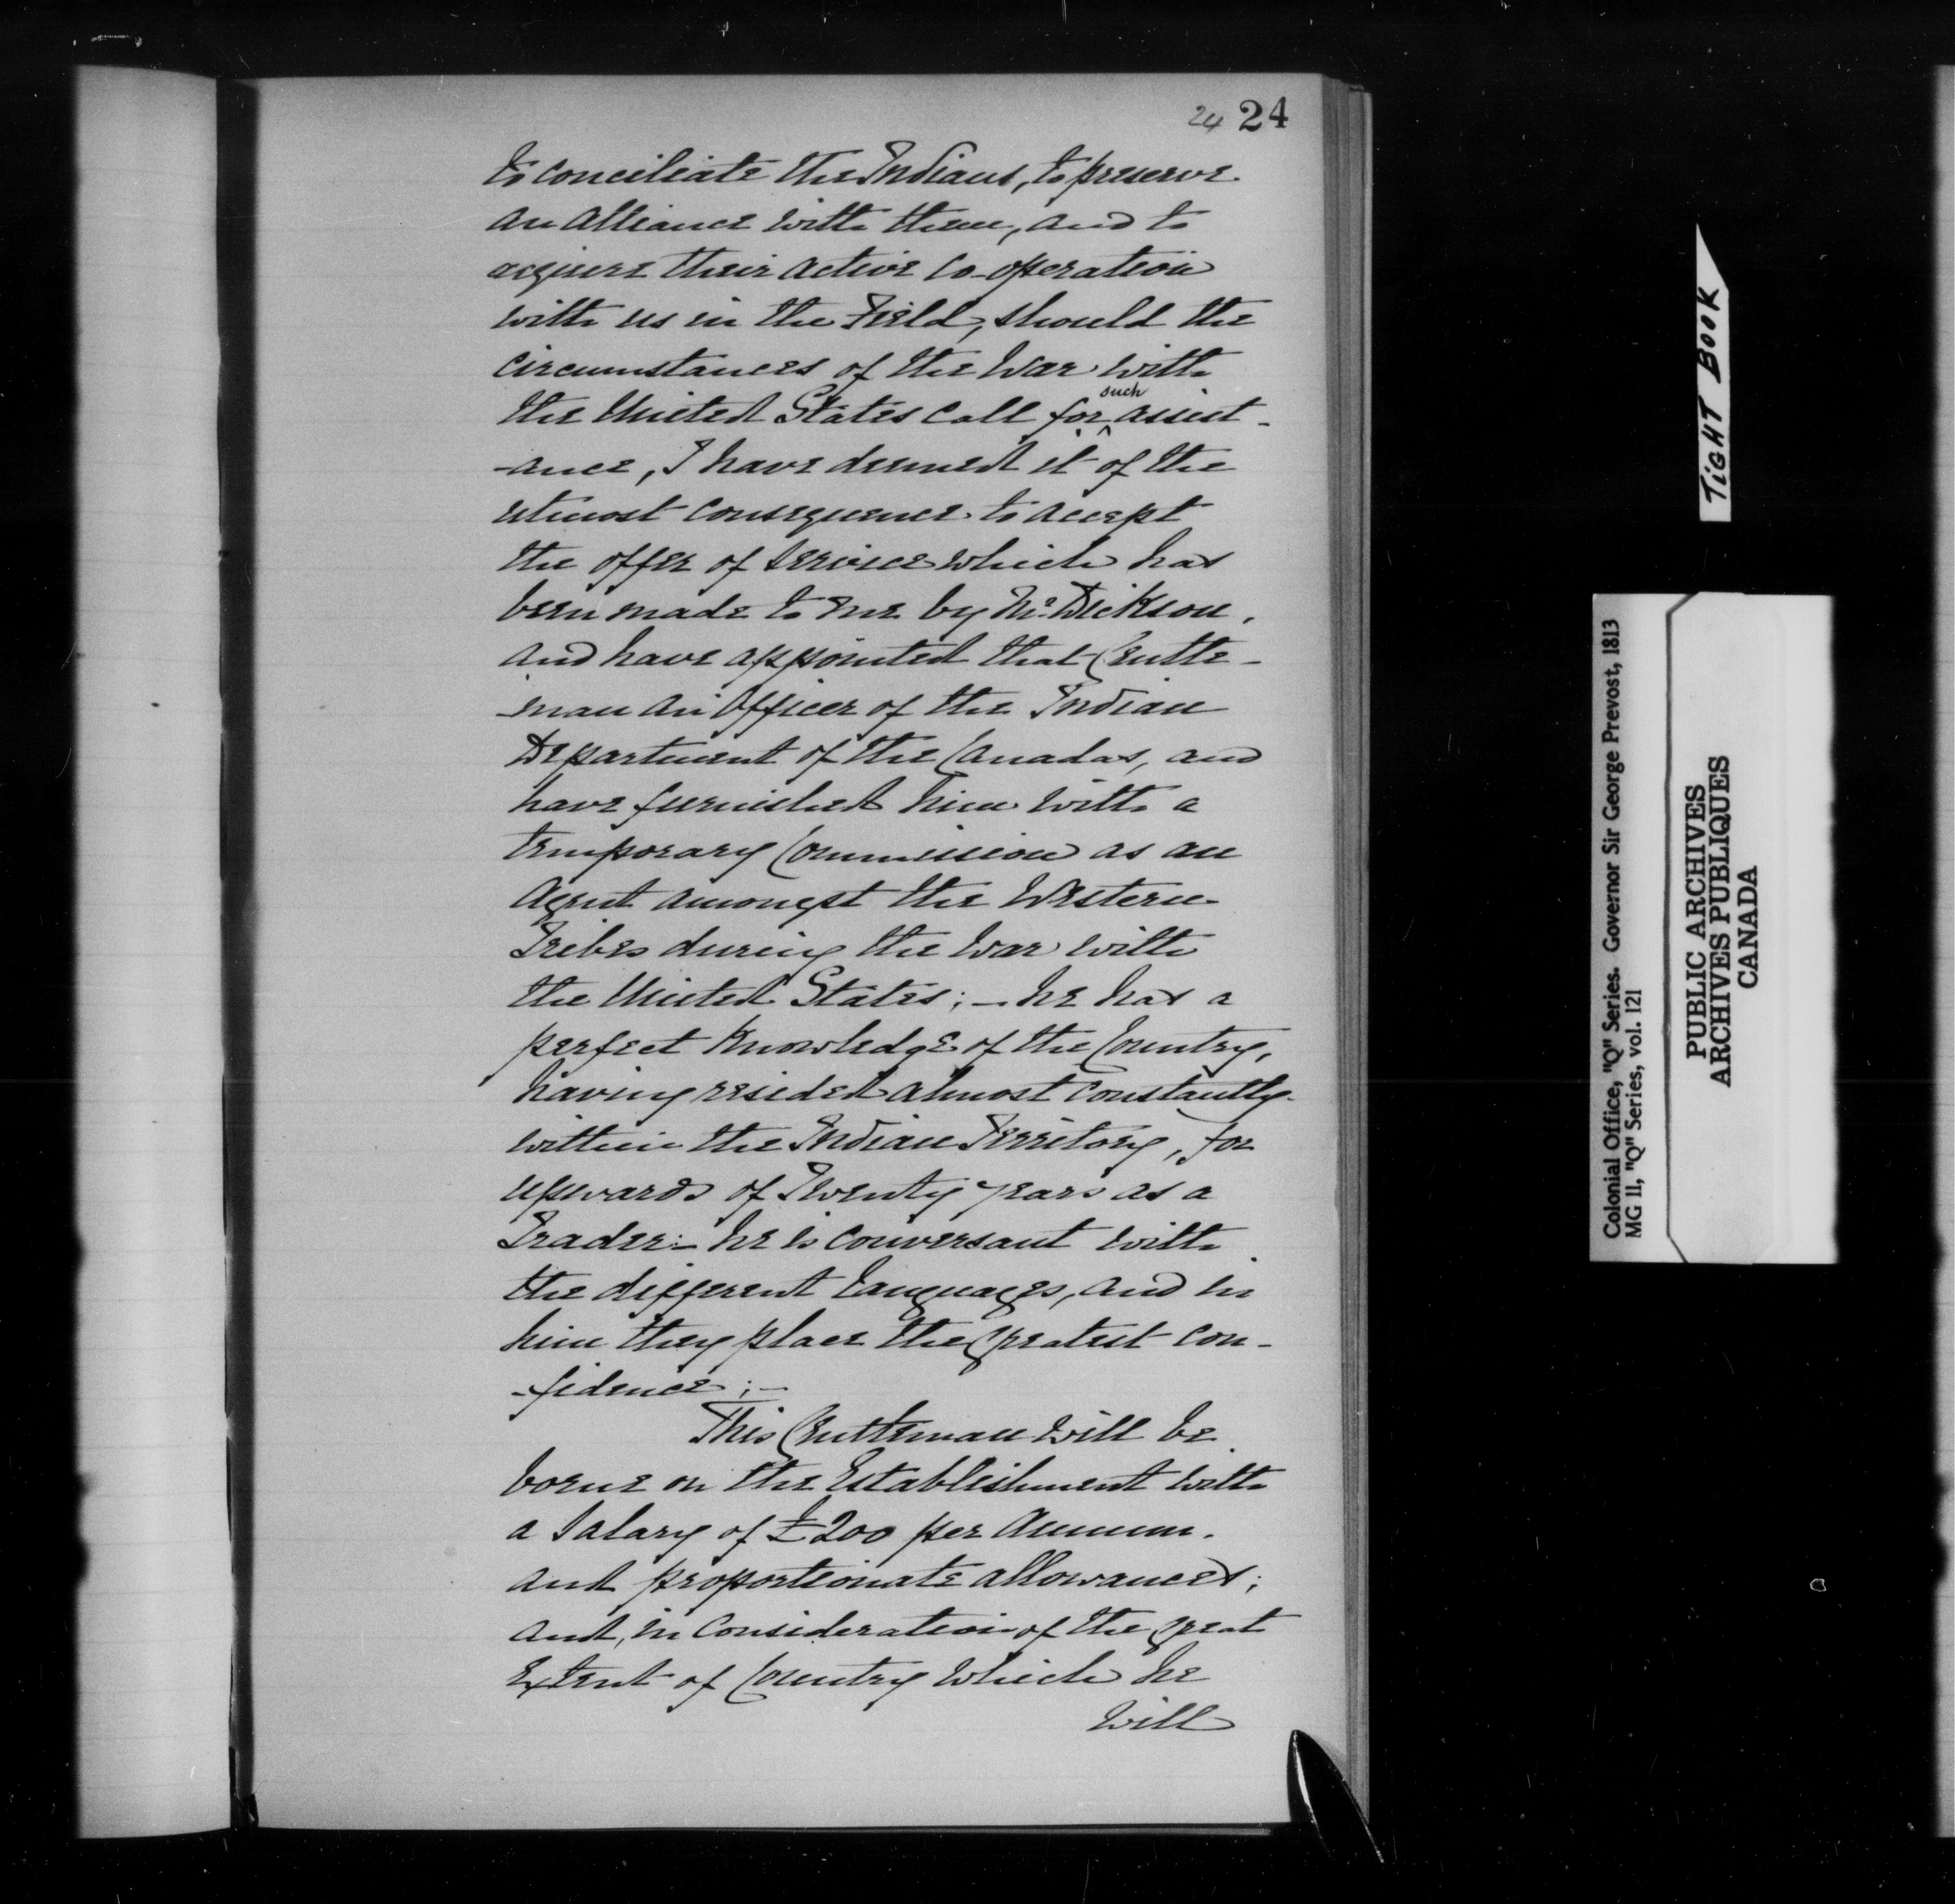 24 24
to conciliate the Indians, to preserve
an alliance with them, and to
acquire their active co-operation
with us in the Field, should the
circumstances of the War with
the United States call for such assist-
-ance, I have deemed it of the
utmost consequence to accept
the offer of service which has
been made to me by Mr. Dickson,
and have appointed that Gentle-
-man an Officer of the Indian
Department of the Canadas, and
have furnished him with a
temporary Commission as an
Agent amongst the Western
Tribes during the War with
the United States; - he has a
perfect Knowledge of the Country,
having resided almost constantly
within the Indian Territory, for
upwards of Twenty years as a
Trader:- he is conversant with
the different Languages, and in
him they place the greatest con-
-fidence;-
This Gentleman will be
borne on the Establishment with
a Salary of £200 per Annum.
and proportionate allowances;
and, in consideration of the great
Extent of Country which he
will
TIGHT BOOK
Colonial Office, "Q" Series. Governor Sir George Prevost, 1813
MG 11, "Q" Series, vol. 121
PUBLIC ARCHIVES
ARCHIVES PUBLIQUES
CANADA